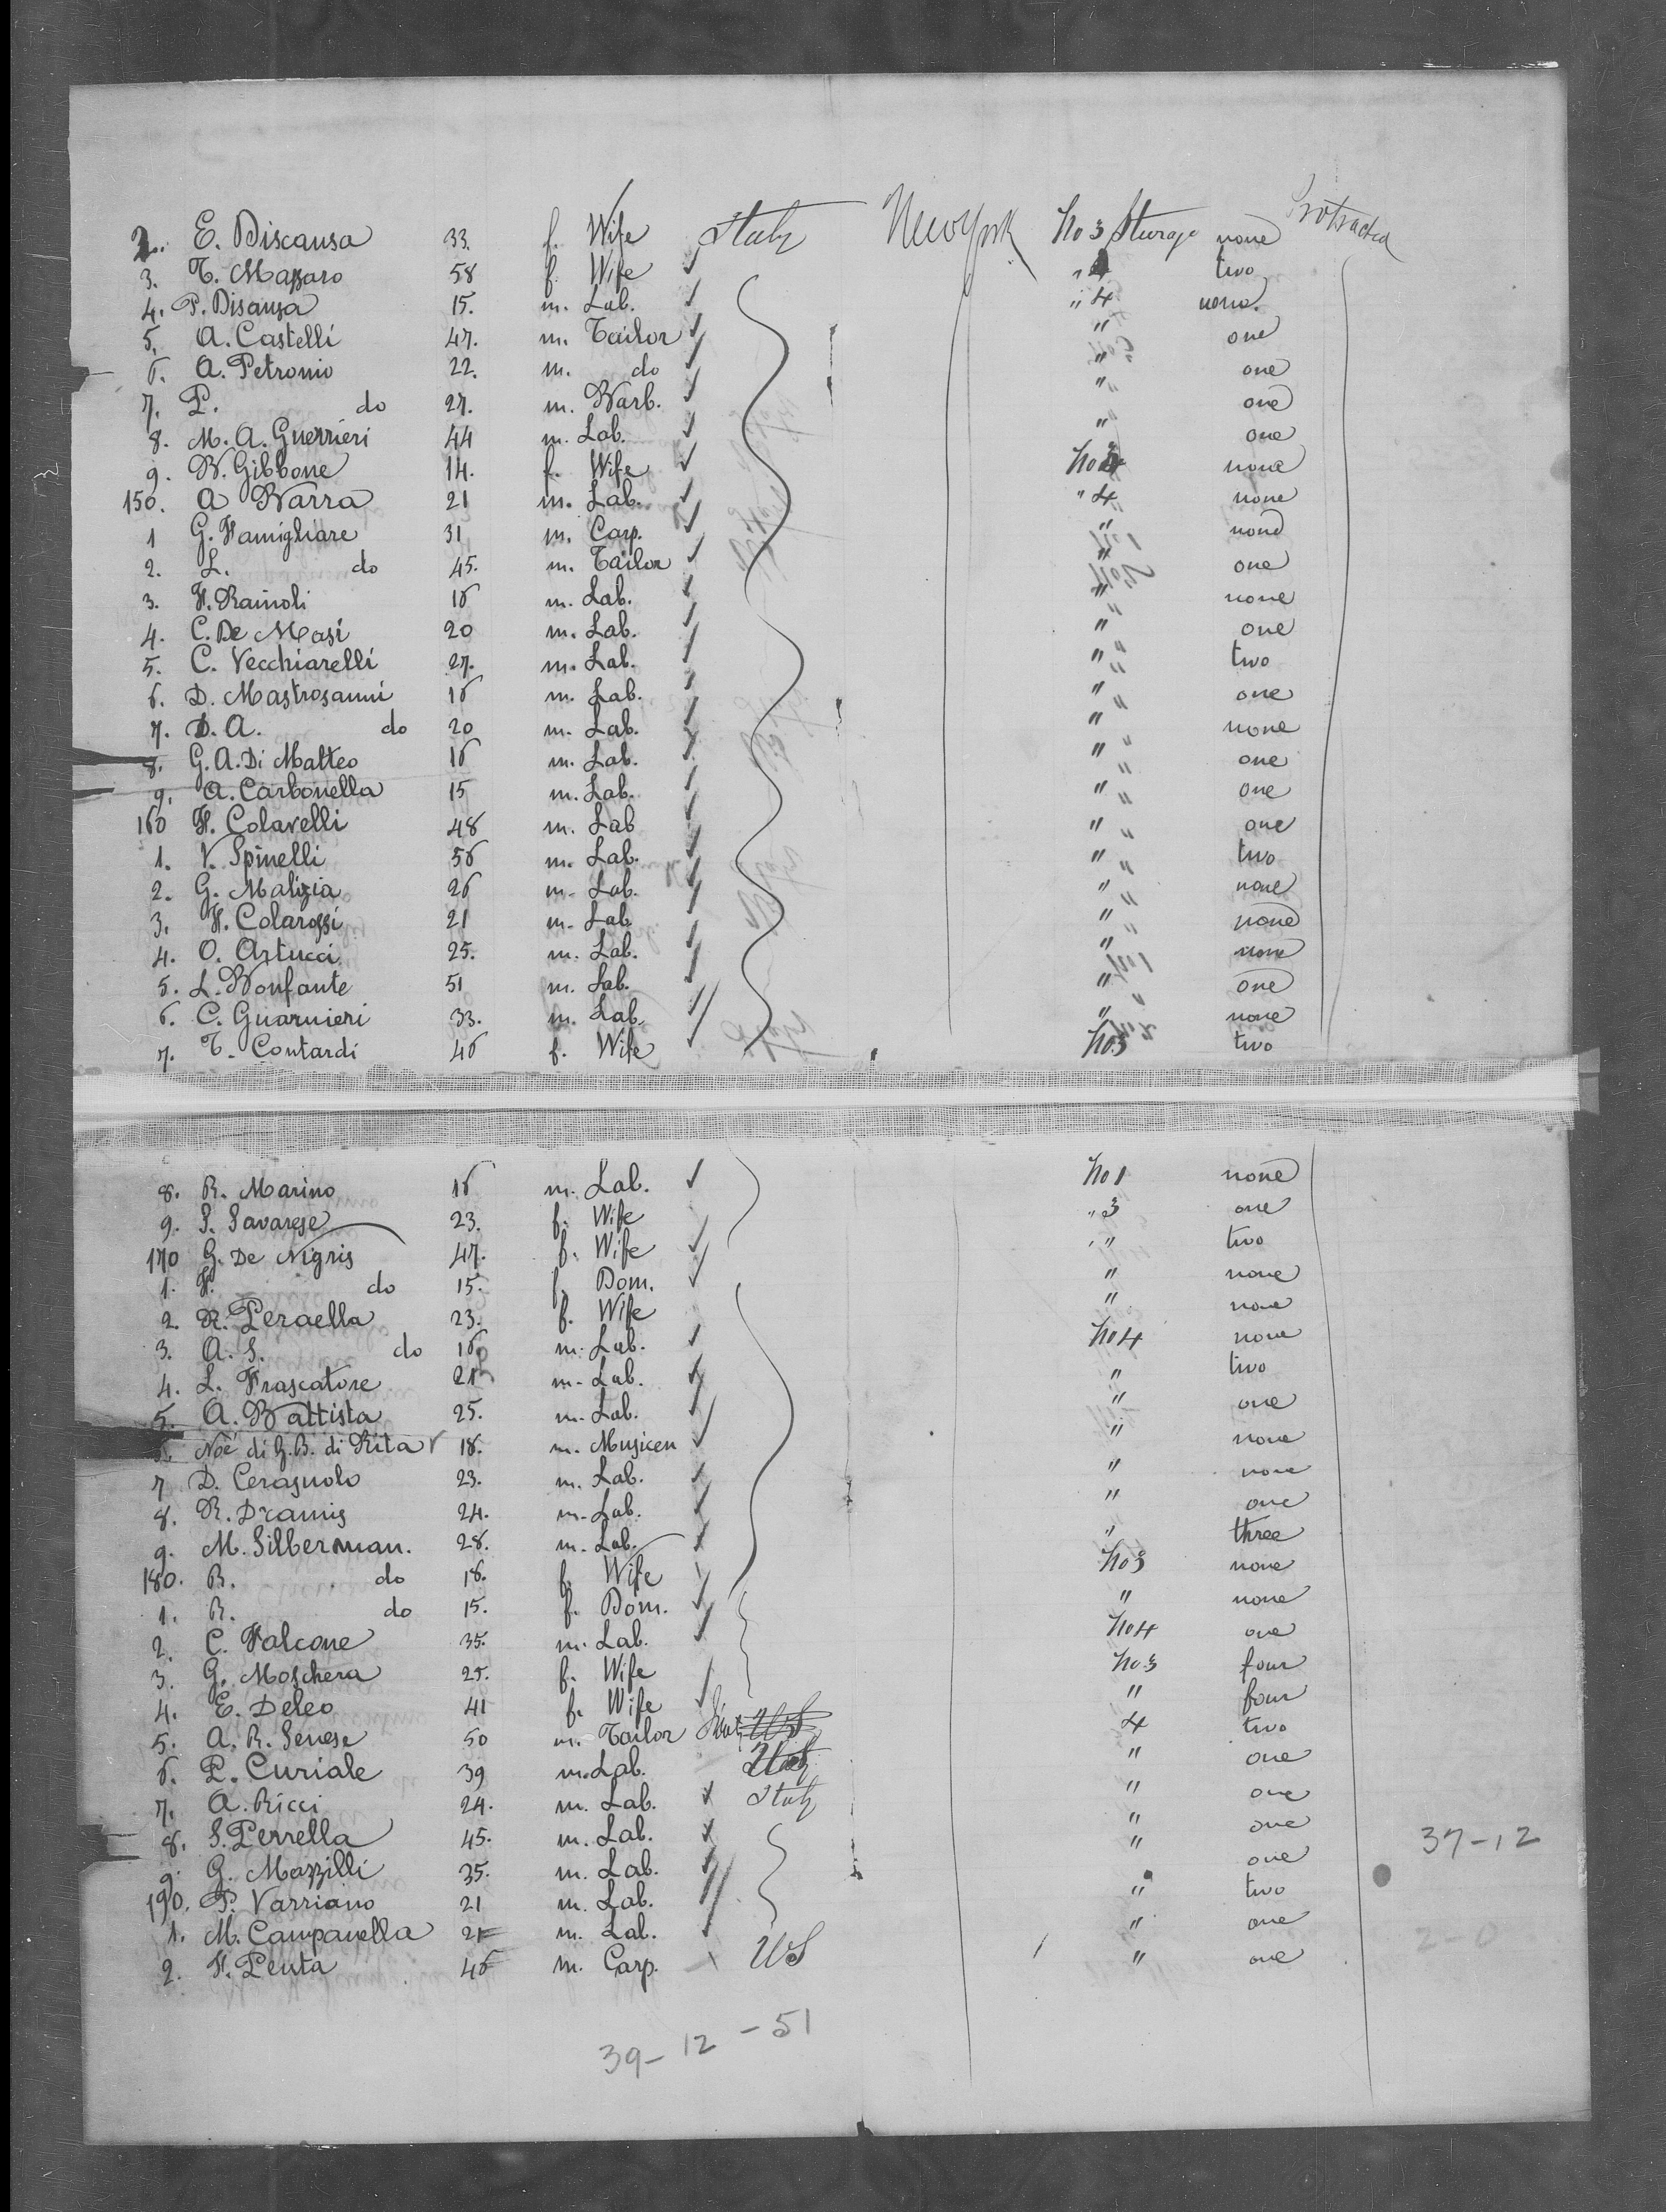 2. E. Discansa 33. f. Wife Italy New York No 3 Sturage none Protracted
3. T. Massaro 58 f. Wife " 4 two
4. P. Disansa 15. m. Lab. " 4 none.
5. A. Castelli 47. m. Tailor " one
6. A. Petronio 22. m. do " one
7. P. do 27. m. Barb. " one
8. M. A. Guerrieri 44 m. Lab. " one
9. B. Gibbone 14. f. Wife No 3 none
150. A Barra 21 m. Lab. " 4 none
1 G. Famigliare 31 m. Carp. " none
2. L. do 45. m. Tailor " one
3. F. Rainoli 16 m. Lab. " none
4. C. De Masi 20 m. Lab. " one
5. C. Vecchiarelli 27. m. Lab. " two
6. D. Mastrosanni 16 m. Lab. " one
7. D. A. do 20 m. Lab. " none
8. G. A. Di Matteo 16 m. Lab. " one
9. A. Carbonella 15 m. Lab. " one
160 F. Colavelli 48 m. Lab " one
1. V. Spinelli 56 m. Lab. " two
2. G. Malizia 26 m. Lab. " none
3. F. Colarossi 21 m. Lab " none
4. O. Artucci 25. m. Lab. " none
5. L. Bonfante 51 m. Lab. " one
6. C. Guarnieri 33. m. Lab. " none
7. T. Contardi 46 f. Wife No3 two
8. R. Marino 16 m. Lab. No 1 none
9. S. Savarese 23. f. Wife " 3 one
170 G. De Nigris 47. f. Wife " two
1. F. do 15. f. Dom. " none
2. R. Peraella 23. f. Wife " none
3. A. S. do 16 m. Lab. No 4 none
4. L. Frascatore 21 m. Lab. " two
5. A. Battista 25. m. Lab. " one
6. Noé di G. B. di Rita 18. m. Musicen " none
7 D. Ceragnolo 23. m. Lab. " none
8. R. Dramis 24. m. Lab. " one
9. M. Silberman. 28. m. Lab. " three
180. R. do 18. f. Wife No 3 none
1. R. do 15. f. Dom. " none
2. C. Falcone 35. m. Lab. No 4 one
3. G. Moschera 25. f. Wife No 3 four
4. E. Deleo 41 f. Wife " four
5. A. R. Senese 50 m. Tailor US 4 two
6. P. Curiale 39 m. Lab. " one
7. A. Ricci 24. m. Lab. Italy " one
8. S. Perrella 45. m. Lab. " one
9. G. Mazzilli 35. m. Lab. " one
37-12
190. P. Varriano 21 m. Lab. " two
1. M. Campanella 21 m. Lab. " one
2-0
2. F. Penta 46 m. Carp. US " one
39-12-51